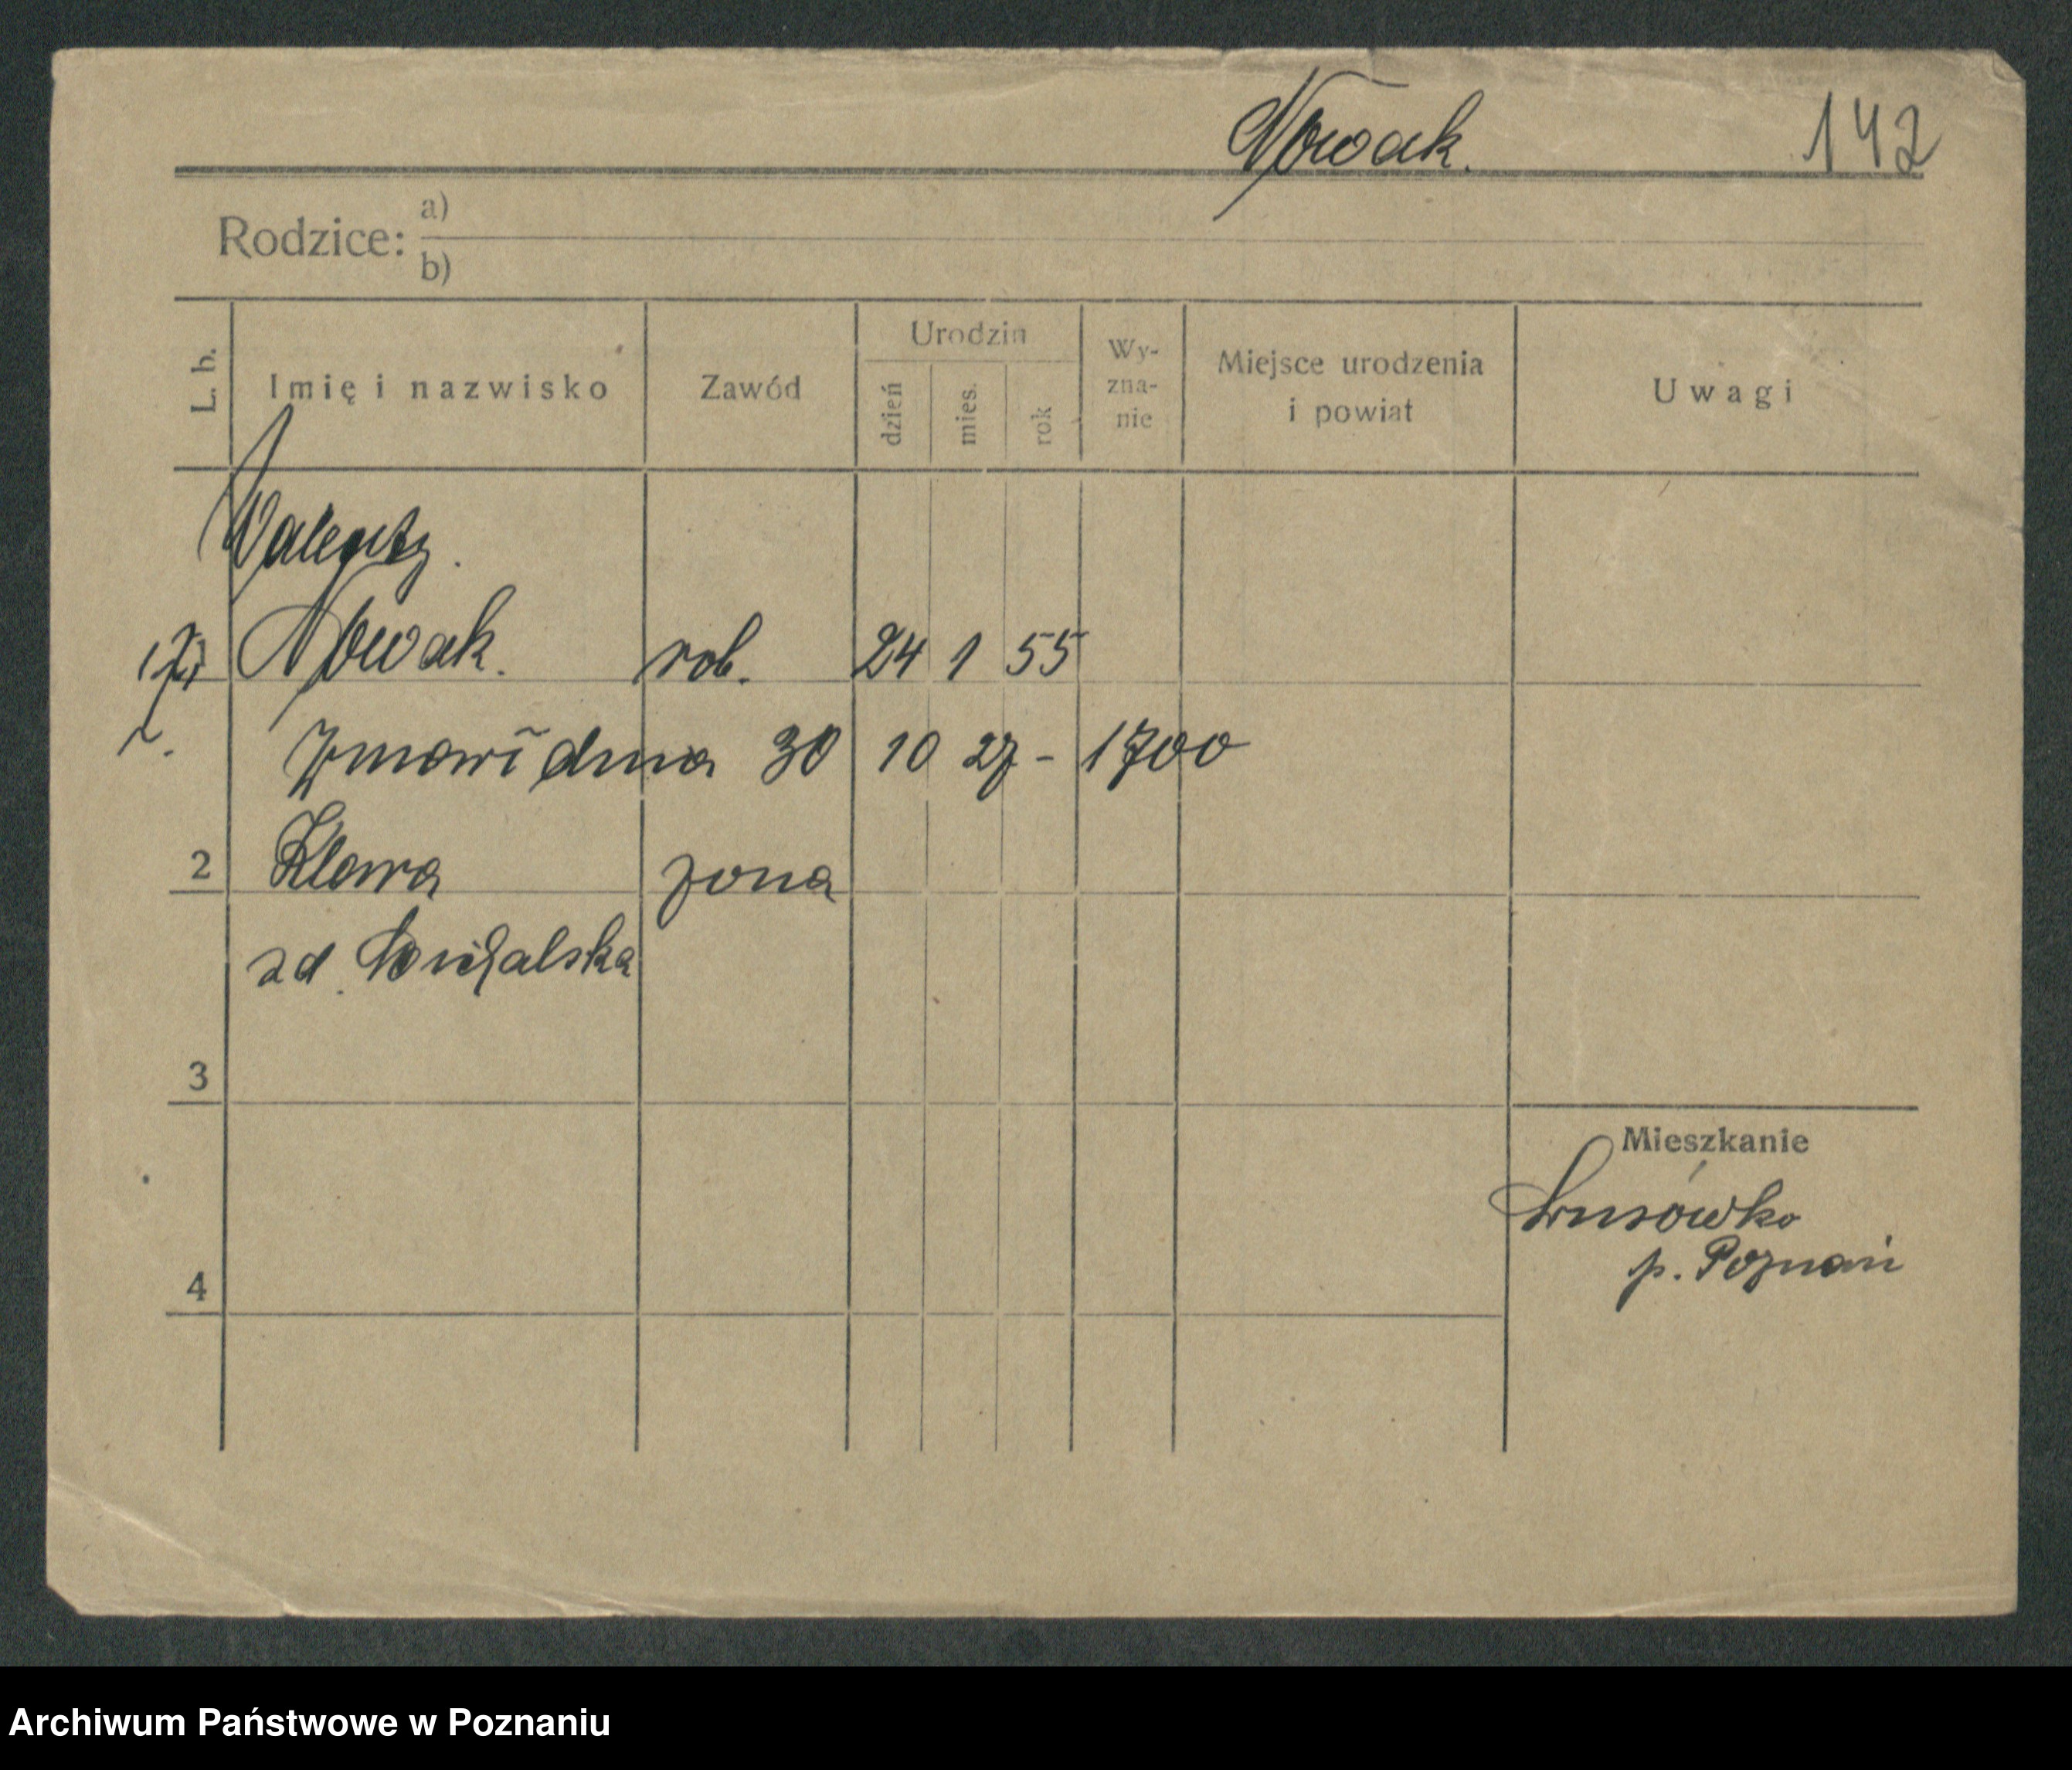 Nowak. 142
Rodzice: a)
b)
L. b. Imię i nazwisko Zawód Urodzin dzień mies. rok Wy-zna-nie Miejsce urodzenia i powiat Uwagi
Walenty.
Nowak. rob. 24 1 55
Zmarł dnia 30 10 27 - 1700
2 Klara żona
zd. Michalska
3
Mieszkanie
Lusówko
p. Poznań
4
Archiwum Państwowe w Poznaniu